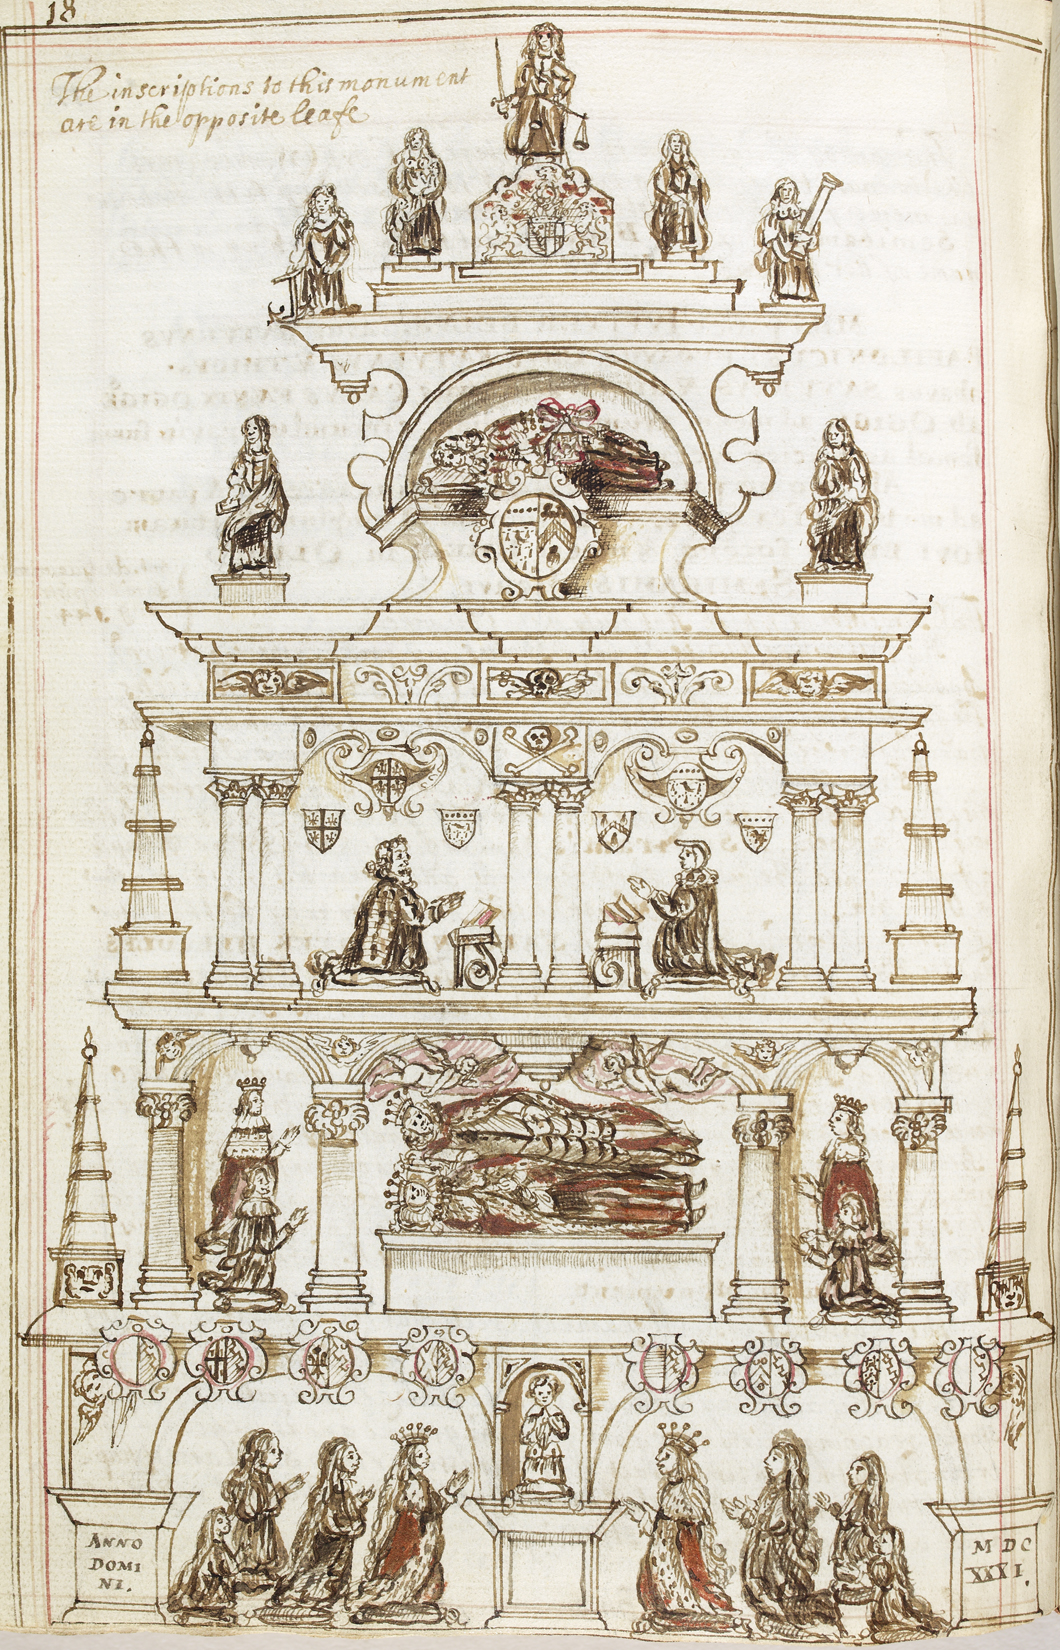 18
The inscriptions to this monument
are in the opposite leafe
ANNO
DOMI
NI.
M DC
XXXI.